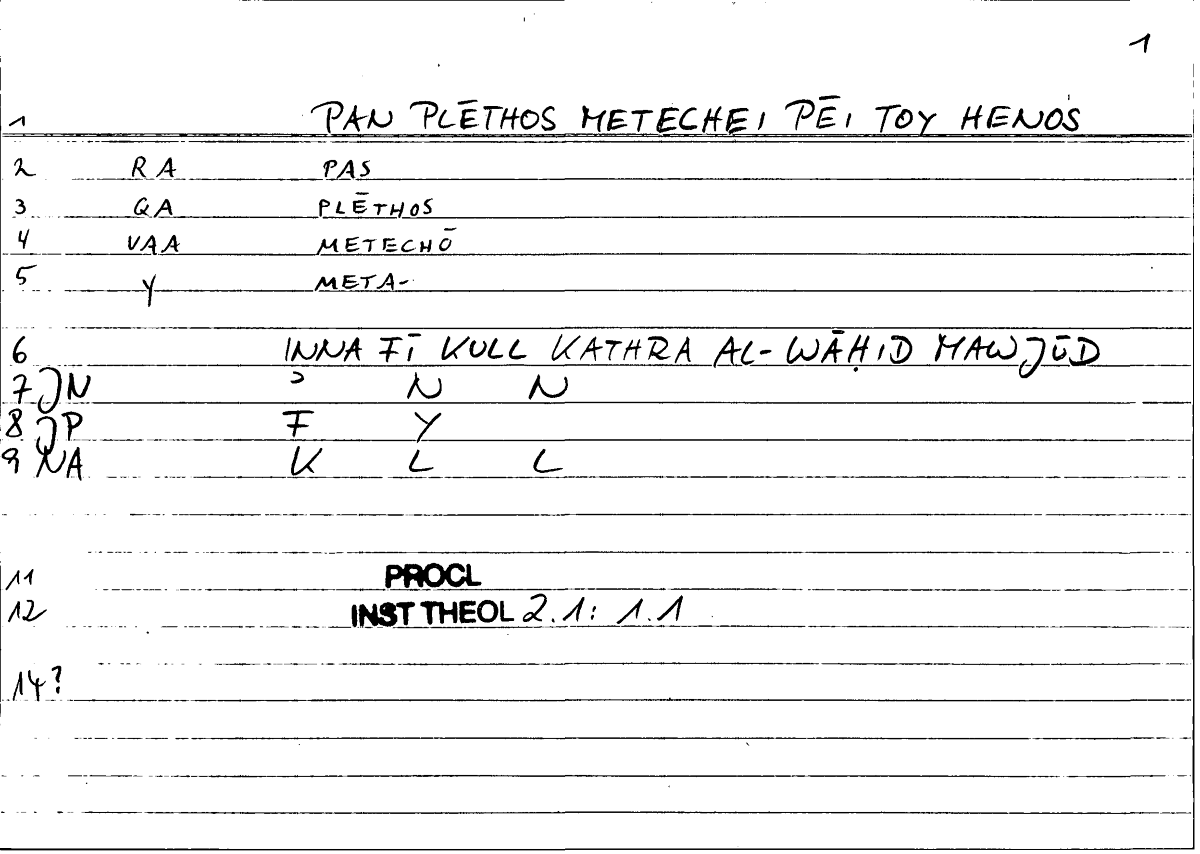 1
1 PAN PLĒTHOS METECHEI PĒI TOY HENOS
2 RA PAS
3 QA PLĒTHOS
4 VAA METECHŌ
5 Y META-
6 INNA FĪ KULL KATHRA AL-WĀḤID MAWJŪD
7 JN ʾ N N
8 JP F Y
9 NA K L L
11 PROCL
12 INST THEOL 2.1: 1.1
14?